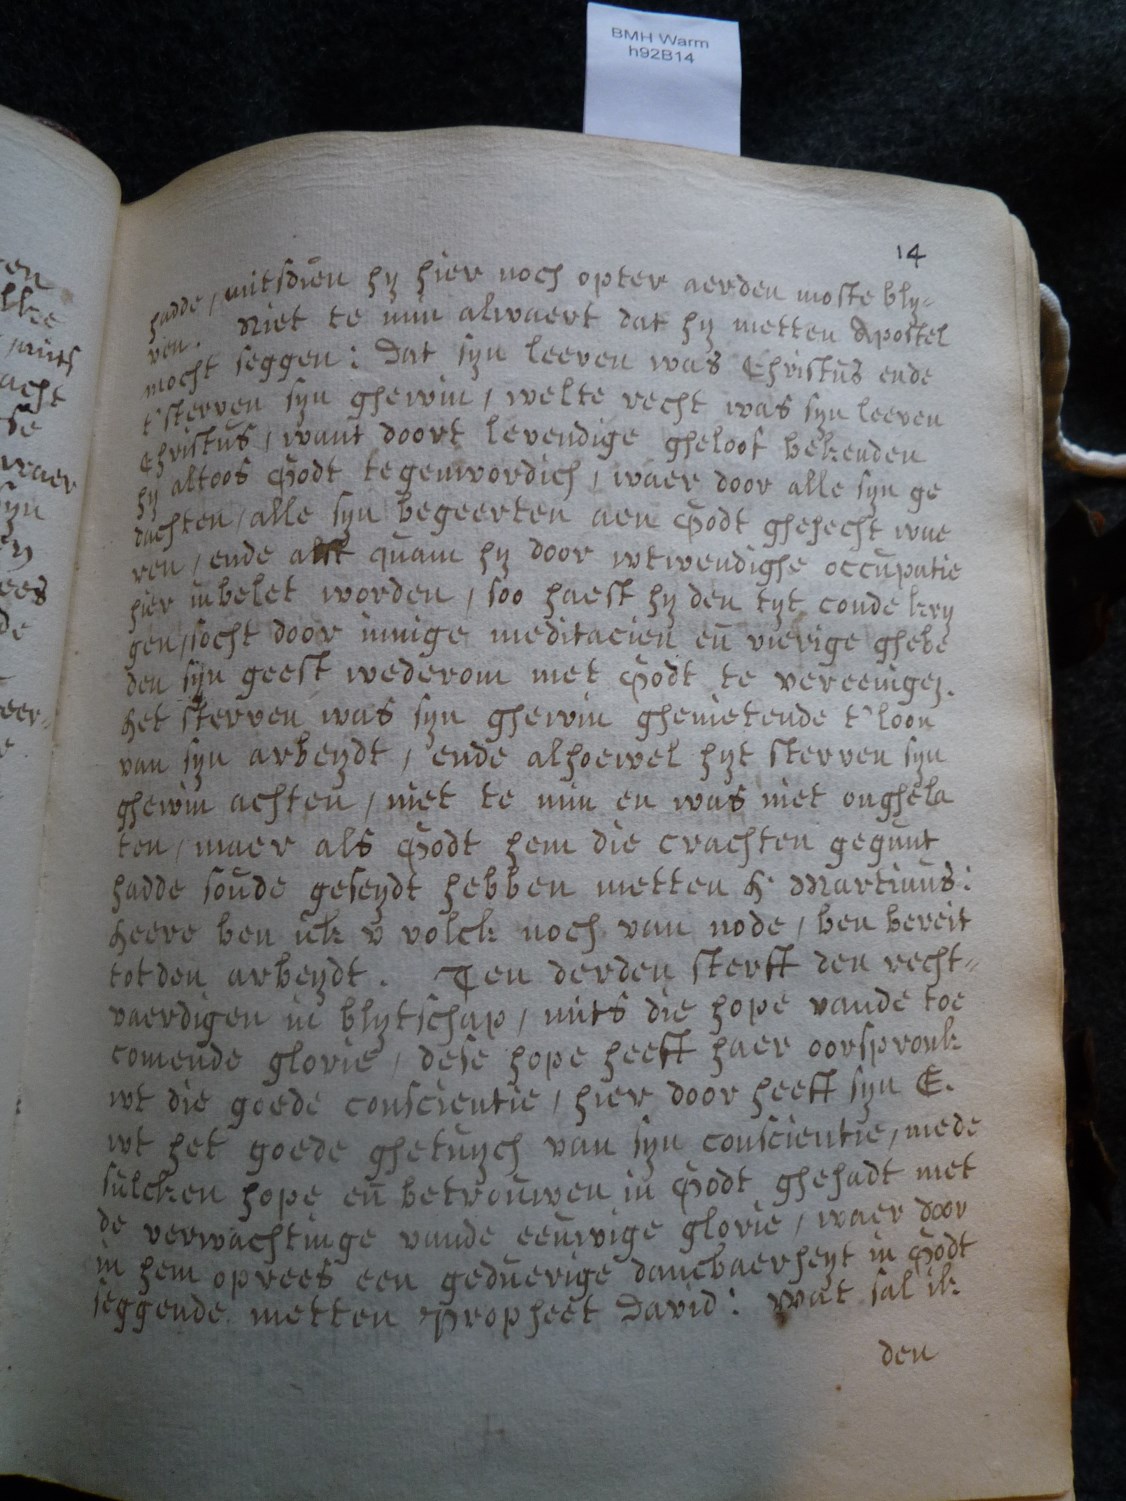 BMH Warm
h92B14
14
hadde, mitsdien hy hier noch opter aerden moste bly-
ven. Niet te min alwaert dat hy metten Apostel
mocht seggen: Dat syn leeven was Christus ende
t'sterven syn ghewin, welte recht was syn leeven
Christus, want doort levendige gheloof bekenden
hy altoos Godt tegenwordich, waer door alle syn ge
dachten, alle syn begeerten aen Godt ghehecht wae
ren, ende alst quam hy door wtwendighe occupatie
hier in belet worden, soo haest hy den tyt conde kry
gen, socht door innige meditacien en vierige ghebe
den syn geest wederom met Godt te vereenigen.
Het sterven was syn ghewin ghenietende t'loon
van syn arbeydt, ende alhoewel hyt sterven syn
ghewin achten, niet te min en was niet onghela
ten, maer als Godt hem die crachten gegunt
hadde soude geseydt hebben metten H. Martinus:
Heere ben ick u volck noch van node, ben bereit
tot den arbeydt. Ten derden sterft den recht-
vaerdigen in blytschap, mits die hope vande toe
comende glorie, dese hope heeft haer oorspronk
wt die goede conscientie, hier door heeft syn E.
wt het goede ghetuych van syn conscientie, mede
sulcken hope en betrouwen in Godt ghehadt met
de verwachtinge vande eeuwige glorie, waer door
in hem oprees een geduerige dancbaerheyt in Godt
seggende metten Propheet David: Wat sal ik
den